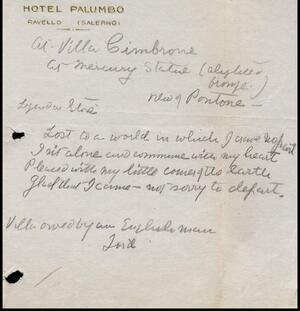 HOTEL PALUMBO
RAVELLO (SALERNO)
At Villa Cimbrone
at Mercury Statue
bronze
view of Pontone —
Lost to a world in which I crave no part
I sit alone and commune with my heart
Pleased with my little corner of the earth
Glad that I came — not sorry to depart.
Villa owned by an Englishman
Lord